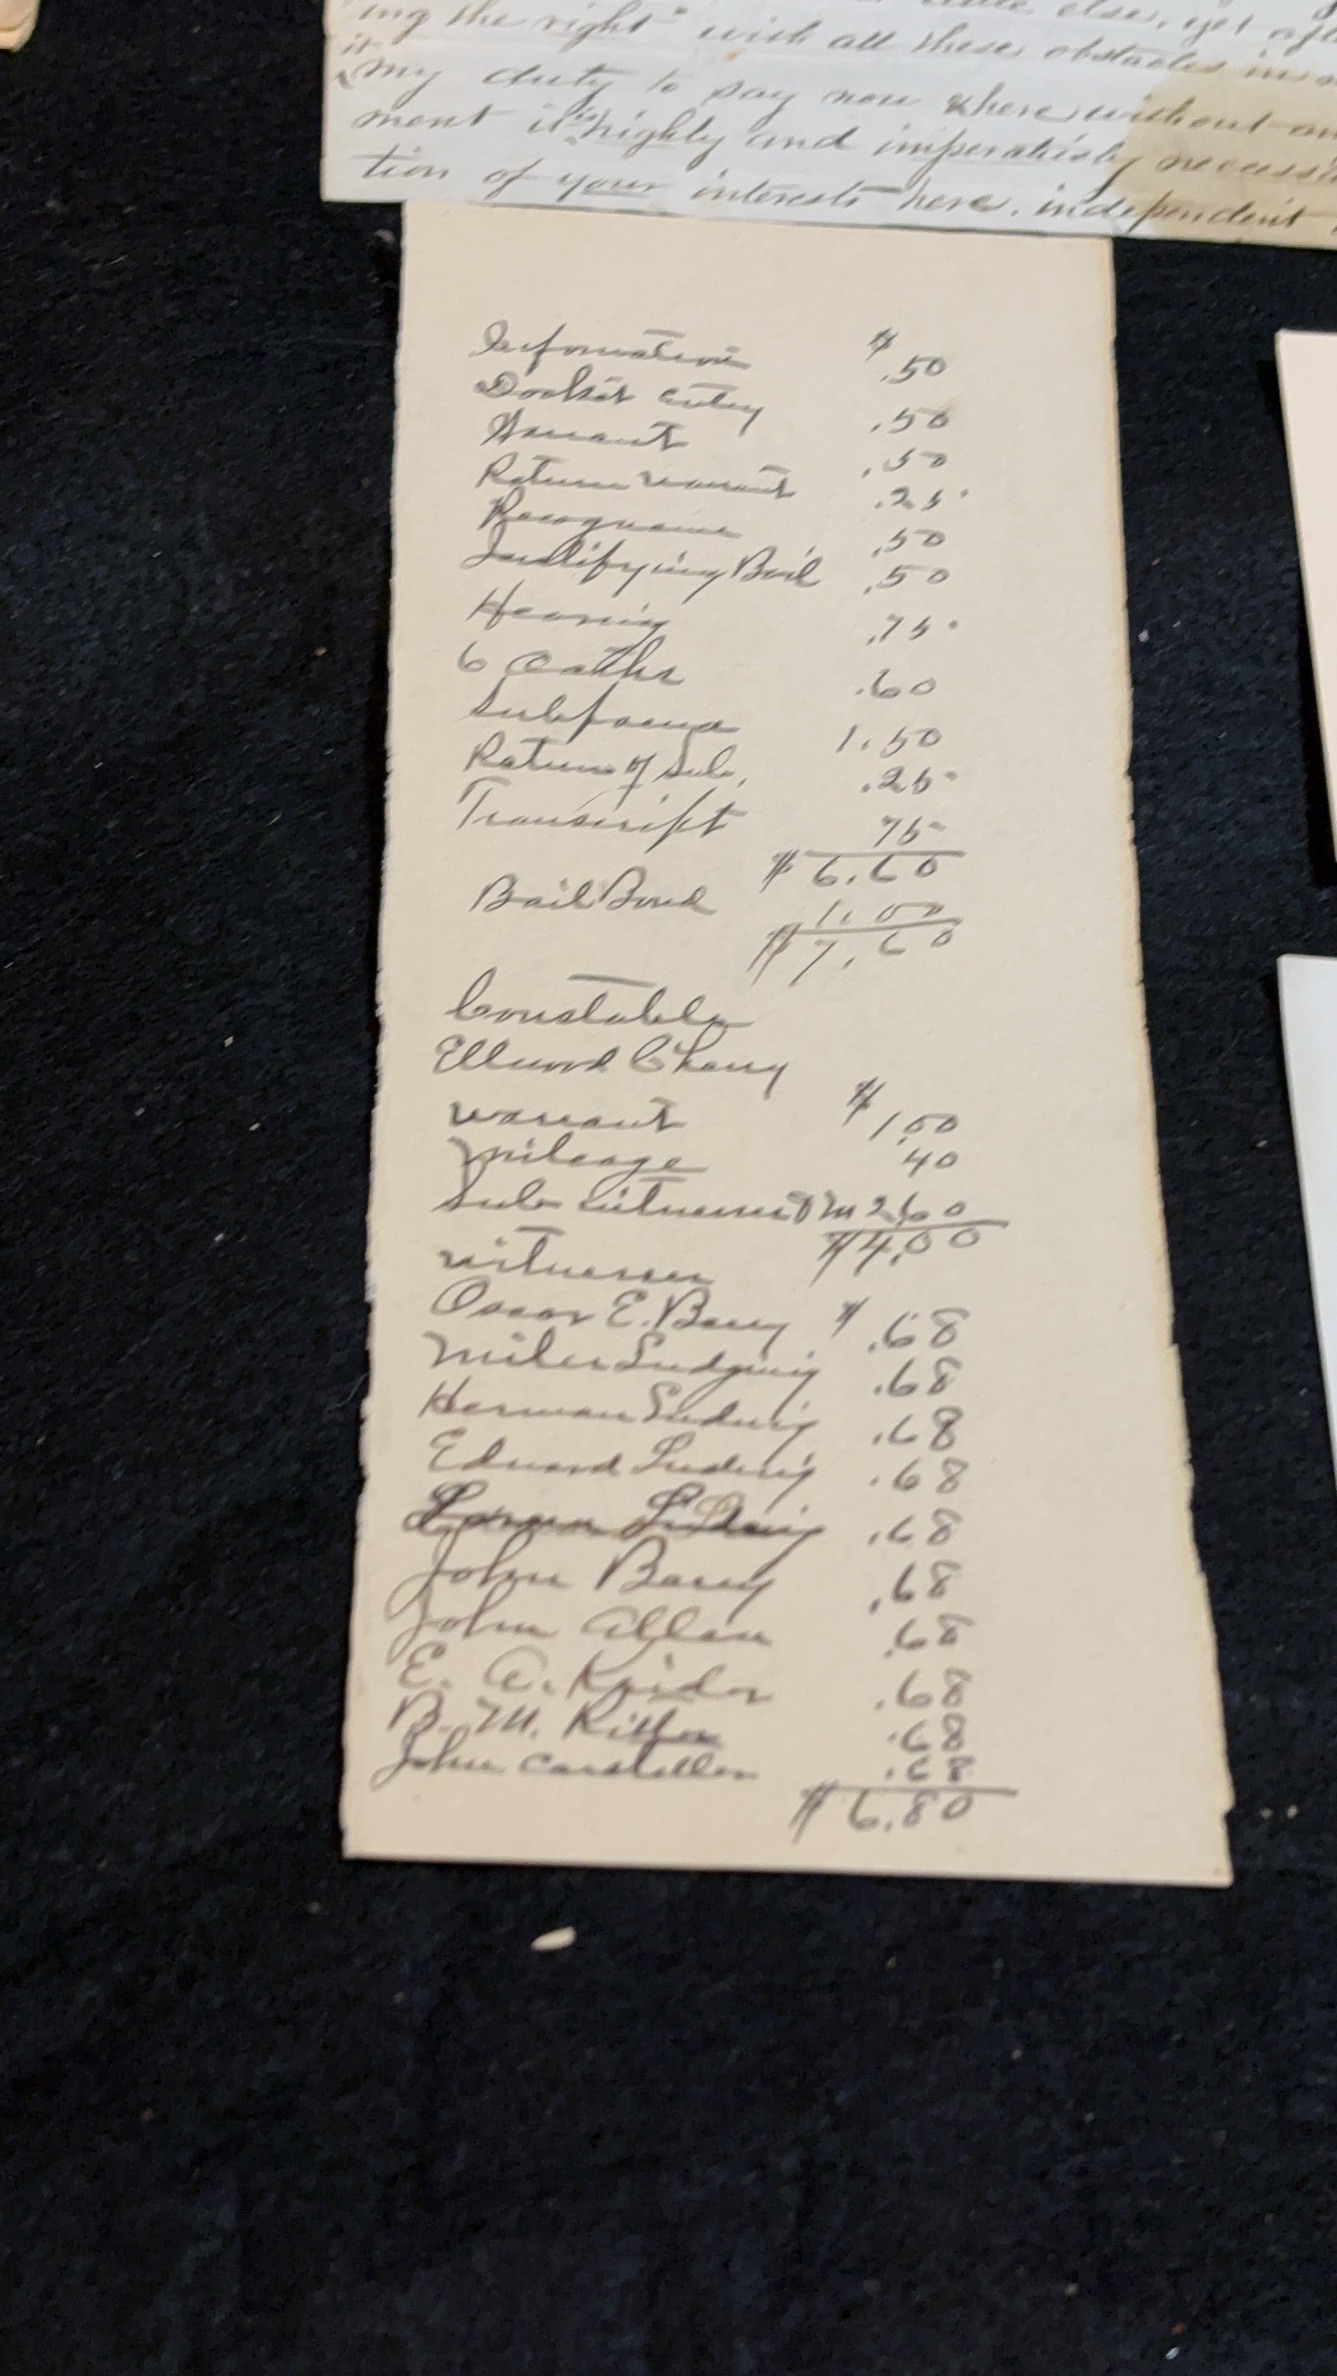 else, yet
ing the right" with all these obstacles
it
my duty to say now & here without
ment it is highly and imperatively
tion of your interests here, independent
Information $ .50
Docket entry .50
Warrant .50
Return warrant .25
Recognance .50
Justifying Bail .50
Hearing .75
6 Oaths .60
Subpoena 1.50
Return of Sub. .25
Transcript 75
$ 6.60
Bail Bond 1.00
$ 7.60
Constable
Ellwood Charry
warrant $ 1.00
mileage 40
Sub witnesses 2.60
$ 4.00
witnesses
Oscar E. Barry $ .68
Miles Ludgwig .68
Herman Ludwig .68
Edward Ludwig .68
.68
John Barry .68
John Allen .68
E. A. Kreider .68
B. M. Ritter .68
John Carstetter .68
$ 6.80